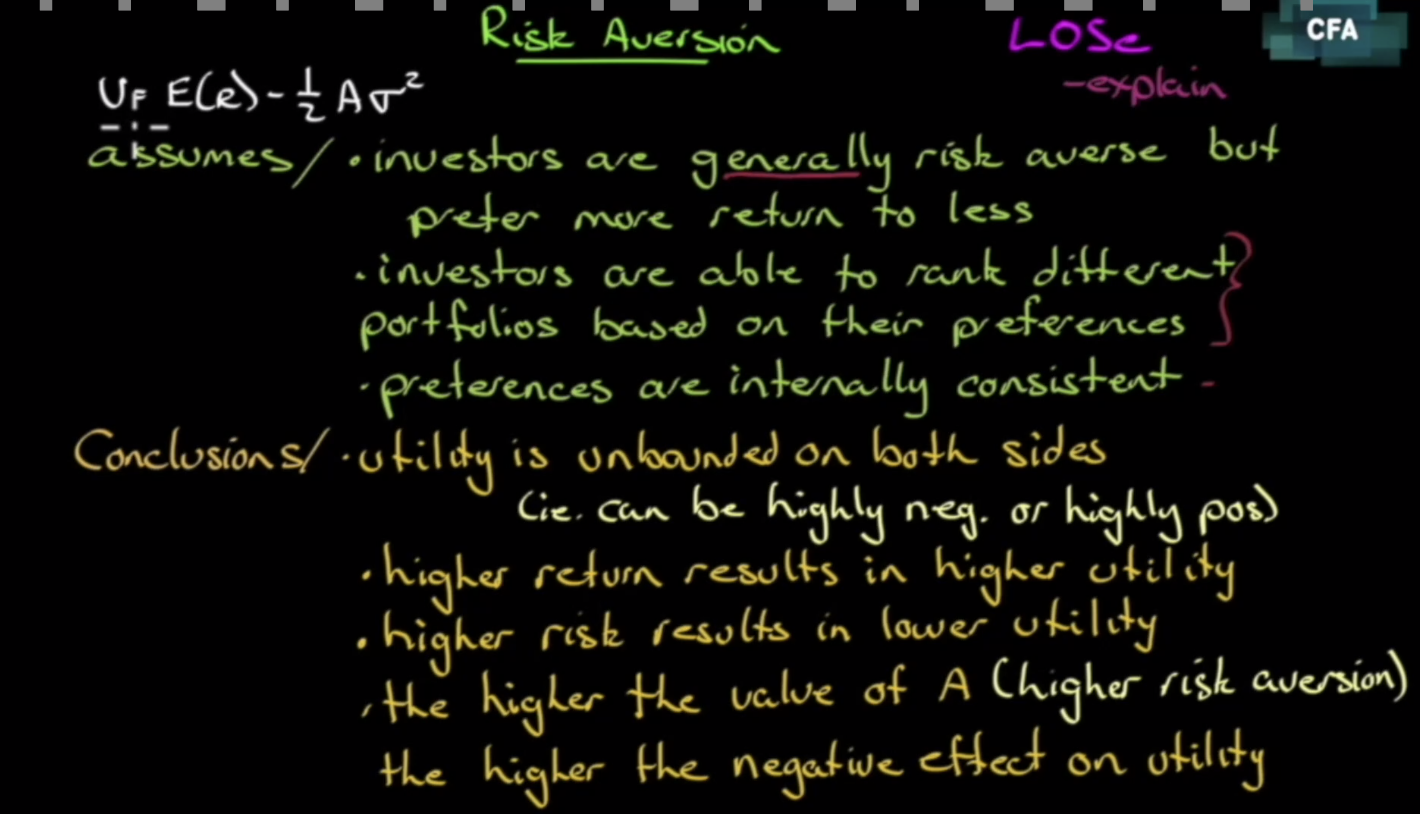 Risk Aversion
LOSc
CFA
-explain
U= E(R) - 1/2 A σ²
assumes/ • investors are generally risk averse but
prefer more return to less
• investors are able to rank different
portfolios based on their preferences
• preferences are internally consistent -
Conclusions/ • utility is unbounded on both sides
(ie. can be highly neg. or highly pos)
• higher return results in higher utility
• higher risk results in lower utility
• the higher the value of A (higher risk aversion)
the higher the negative effect on utility